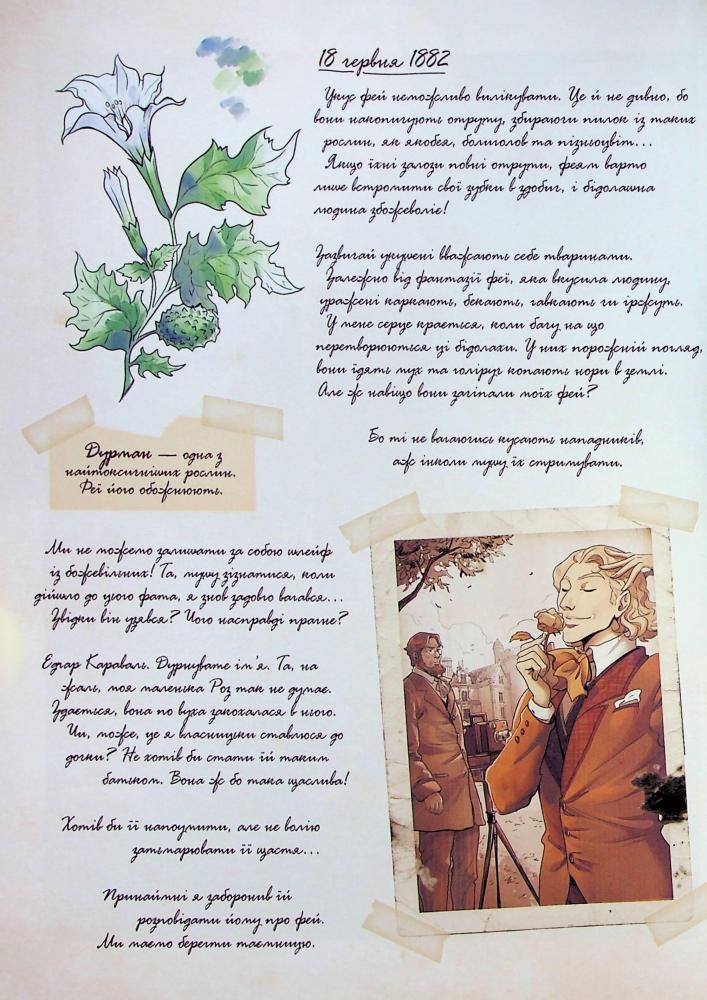 18 червня 1882
Укус фей неможливо вилікувати. Це й не дивно, бо
вони накопичують отруту, збираючи пилок із таких
рослин, як якобея, болиголов та пізньоцвіт...
Якщо їхні залози повні отрути, феям варто
лише встромити свої зубки в здобич, і бідолашна
людина збожеволіє!
Зазвичай укушені вважають себе тваринами.
Залежно від фантазії феї, яка вкусила людину,
уражені каркають, бекають, гавкають чи іржуть.
У мене серце крається, коли бачу на що
перетворюються ці бідолахи. У них порожній погляд,
вони їдять мух та голіруч копають нори в землі.
Але ж навіщо вони займали моїх фей?
Бо ті не вагаючись кусають нападників,
аж інколи мушу їх стримувати.
Дурман — одна з
найтоксичніших рослин.
Феї його обожнюють.
Ми не можемо залишати за собою шлейф
із божевільних! Та, мушу зізнатися, коли
дійшло до цього фата, я знов задовго вагався...
Звідки він узявся? Чого насправді прагне?
Едгар Караваль. Дурнувате ім'я. Та, на
жаль, моя маленька Роз так не думає.
Здається, вона по вуха закохалася в нього.
Чи, може, це я власницьки ставлюся до
дочки? Не хотів би стати їй таким
батьком. Вона ж бо така щаслива!
Хотів би її напоумити, але не волію
затьмарювати її щастя...
Принаймні я заборонив їй
розповідати йому про фей.
Ми маємо берегти таємницю.